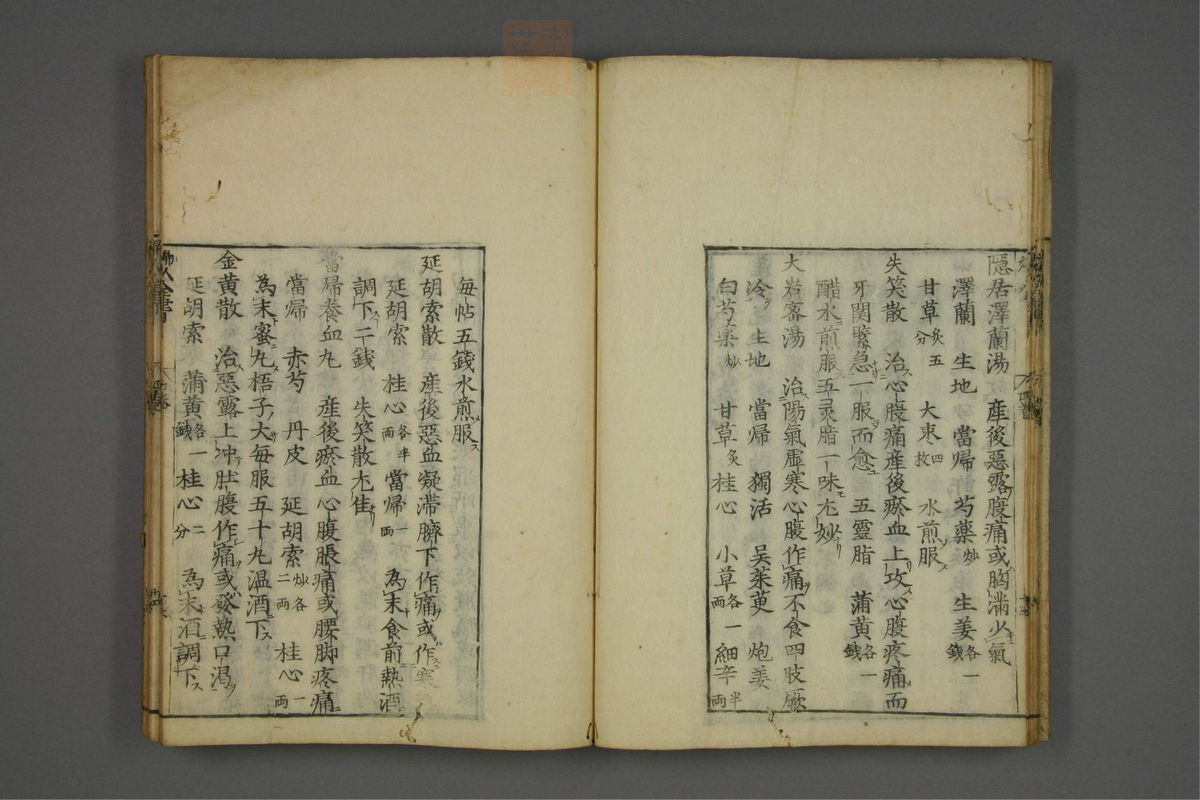 隠居澤蘭湯　産後惡露腹痛或胸滿少氣
澤蘭　生地　當帰　芍薬炒　生姜各一錢
甘草炙五分　大枣四枚　水煎服ス
失笑散　治心腹痛産後瘀血上攻心腹疼痛而
牙関緊急一服而愈　五靈脂　蒲黄各一錢
醋水煎服五灵脂一味尤妙
大岩蜜湯　治陽氣虚寒心腹作痛不食四肢厥
冷　生地　當帰　獨活　吴茱萸　炮姜
白芍薬炒　甘草炙　桂心　小草各一両　細辛半両
毎帖五錢水煎服ス
延胡索散　産後惡血凝滞臍下作痛或作寒
延胡索　桂心各半両　當帰一両　為末食前熱酒
調下二錢　失笑散尤佳
當帰養血丸　産後瘀血心腹脹痛或腰脚疼痛
當帰　赤芍　丹皮　延胡索炒各二両　桂心一両
為末蜜丸梧子大毎服五十丸温酒下ス
金黄散　治惡露上冲肚腹作痛或發熱口渇
延胡索　蒲黄各一錢　桂心二分　為末酒調下ス